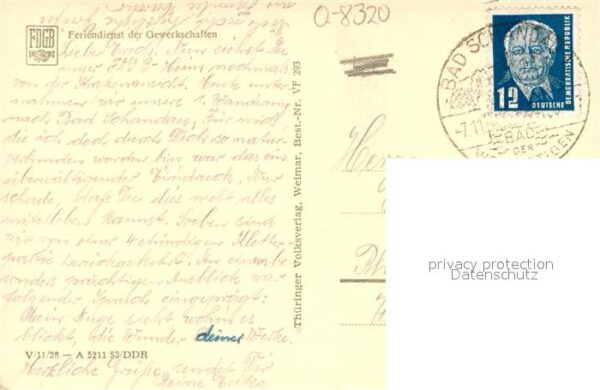 O-8320
FDGB
Feriendienst der Gewerkschaften
Liebe Erich. Nun siehst Du
unser FDGB-Heim nochmals
von der Straßenansicht. Heute unter-
nahmen wir unsere 1. Wanderung
nach Bad Schandau, für mich,
die ich doch durch Dich so natur-
verbunden worden bin war das ein
überwältigender Eindruck. Nur
schade, daß Du dies nicht alles
miterleben kannst. Soeben sind
wir von einer 4 stündigen Kletter-
partie zurückgekehrt. An einem be-
sonders prächtigen Ausblick war
folgender Spruch eingeprägt:
Mein Auge sieht wohin es
blickt, die Wunder deiner Werke.
V/11/28 — A 5211 53/DDR
Herzliche Grüße sendet Dir
Deine Erika.
Thüringer Volksverlag, Weimar, Best.-Nr. VF 293
BAD SCHANDAU
BAD
DER
12
DEUTSCHE
DEMOKRATISCHE REPUBLIK
privacy protection
Datenschutz